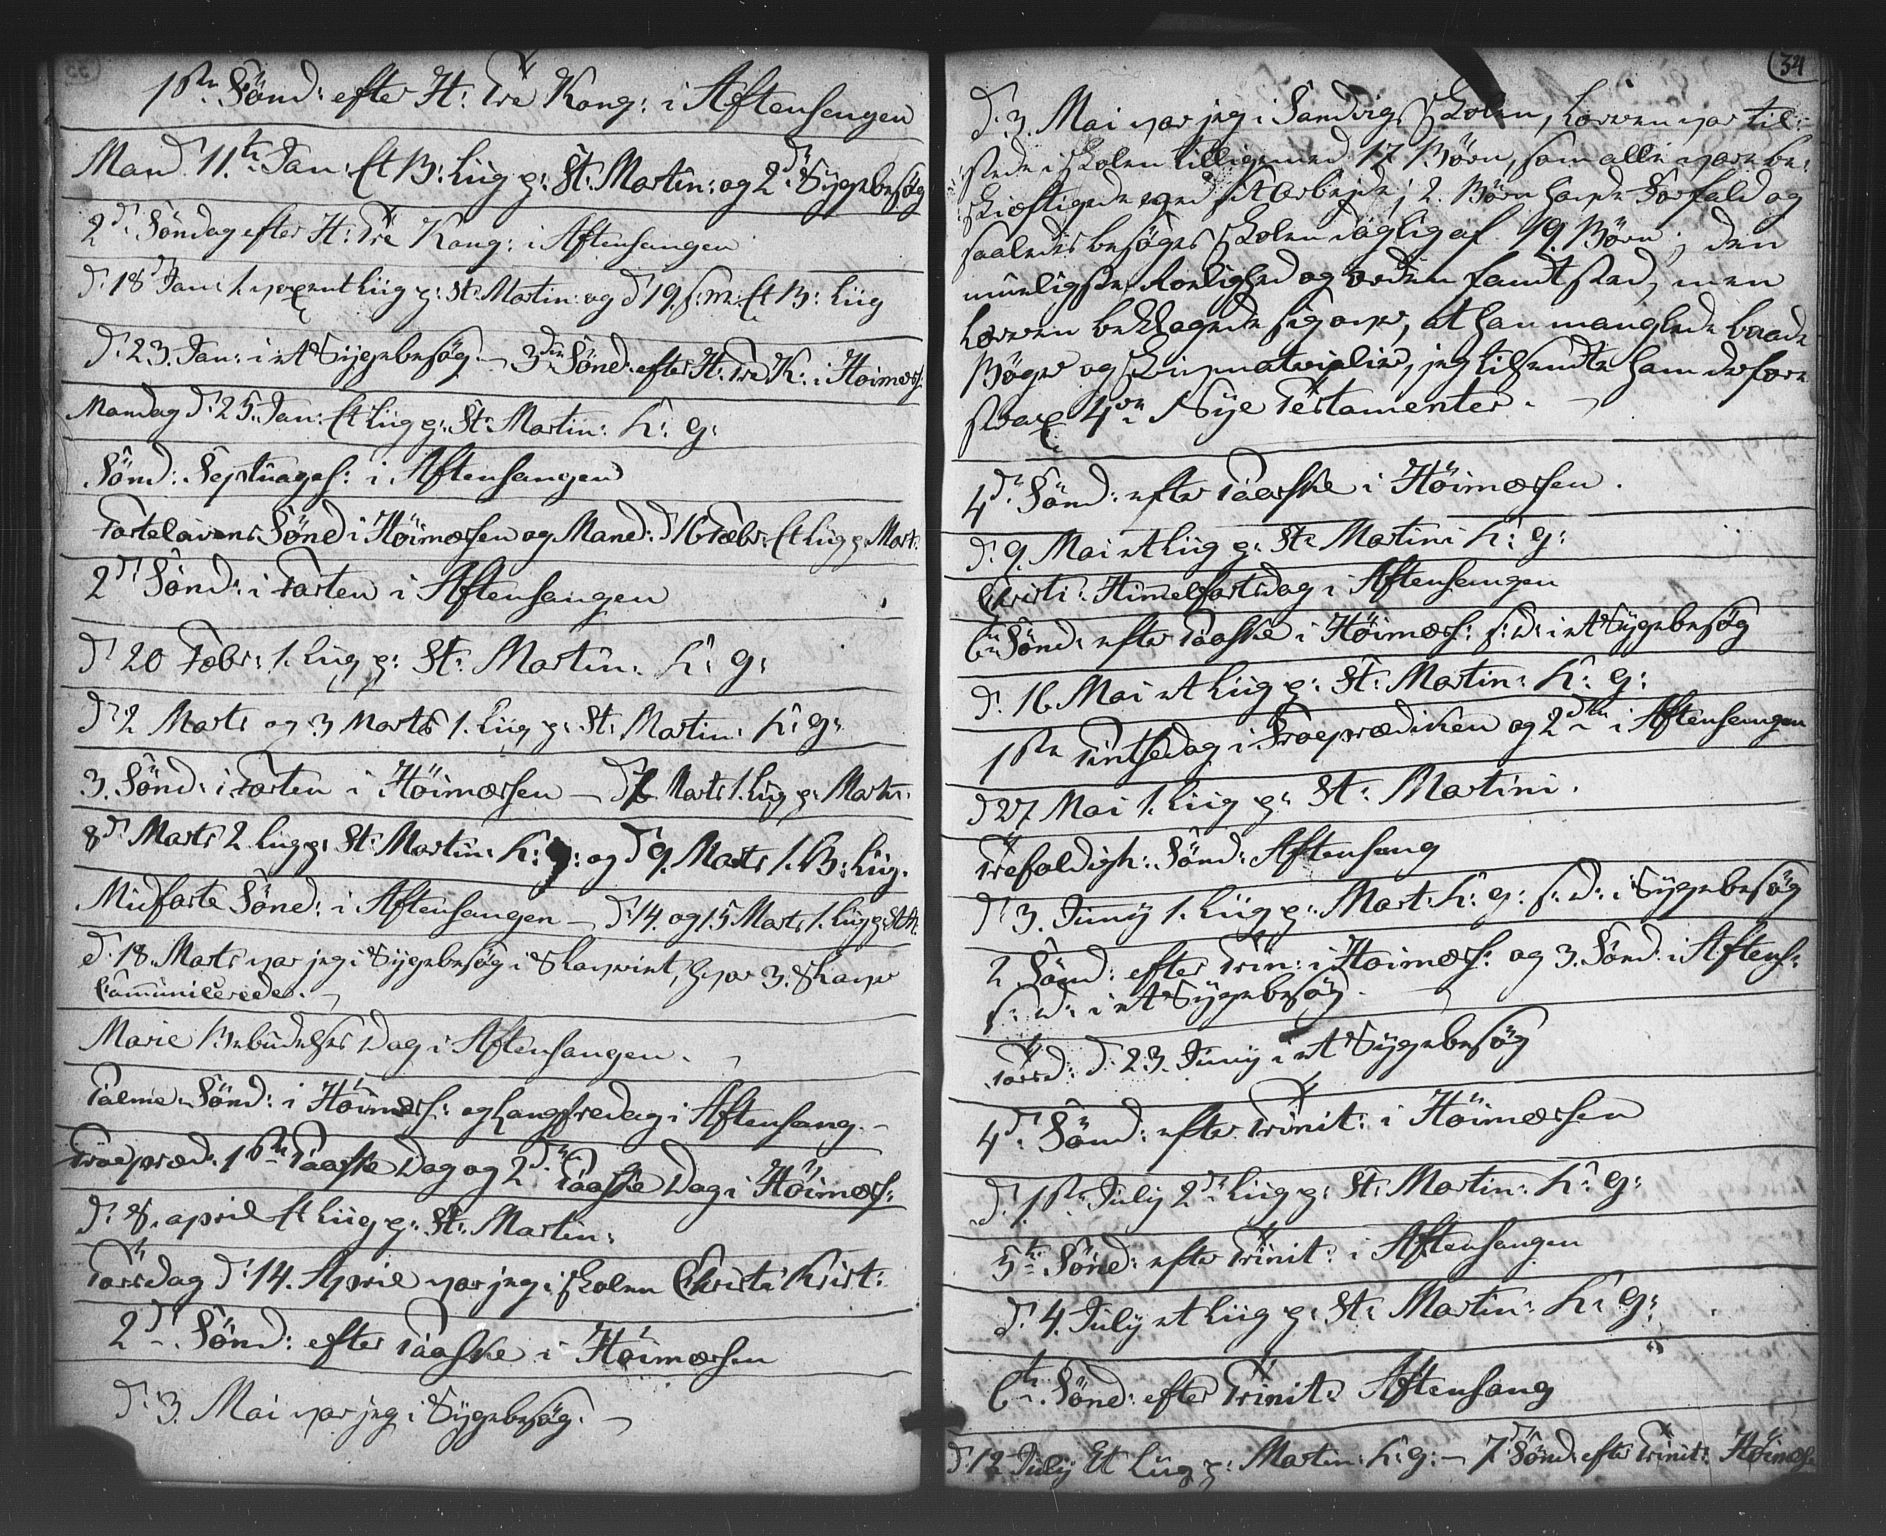 1ste Sönd: efter H: Tre Kong: i Aftensangen
Mand. 11te Jan: Et B: Liig p: St: Martin: og 2de Sygebesög
2d. Söndag efter H: Tre Kong: i Aftensangen
d: 18 Jan: 1 voxent Liig p: St: Martin: og d 19 s: m: Et B: Liig
d: 23. Jan: i et Sygebesög. – 3die Sönd: efter H: Tre K: i Höimess:
Mandag d: 25. Jan: Et Liig p: St: Martin: K: g:
Sönd: Septuages: i Aftensangen
Fastelavens Sönd i Höimæssen og Mand: d 16 Febr: Et Liig p: Mart:
2d: Sönd: i Fasten i Aftensangen
d: 20 Febr: 1. Liig p: St: Martin: K: g:
d: 2 Marts og 3 Marts 1. Liig p: St: Martin: K: g:
3. Sönd: i Fasten i Höimæssen – d: 7 Marts 1. Liig p: Martin:
8d: Marts 2 Liig p: St: Martin: K: g: og d 9. Marts 1. B: Liig.
Midfaste Sönd: i Aftensangen – d: 14. og 15 Marts 1. Liig p: St M:
d. 18. Marts var jeg i Sygebesög i, hvor 3. Slaver
Communicerede. –
Marie Bebudelses Dag i Aftensangen. –
Palme Sönd: i Höimæss: og Langfredag i Aftensang. –
Froepræd: 1ste Paaske Dag og 2d: Paaske Dag i Höimæss:
d: 8. april Et Liig p: St: Martin:
Torsdag d: 14. April var jeg i Skolen Christi Krist:
2d: Sönd: efter Paaske i Höimæssen
d: 3. Mai var jeg i Sygebesög. –
34
d: 3. Mai var jeg i Sandvigs Skolen, Læreren var til:
stede i Skolen tilligemed 17 Börn, som alle vare be:
skiæftigede med sit Arbejde; 2. Börn havde Forfald og
saaledes besöges Skolen daglig af 19. Börn; den
mueligste Roelighed og orden fandt sted, men
Læreren beklagede sig over, at han manglede baade
Böger og Skrivmaterialier, jeg tilsendte ham derfore
strax 4re Nye Testamenter. –
4d: Sönd: efter Paaske i Höimæssen.
d: 9. Mai et Liig p: St: Martini K: g:
Christi: Himelfartsdag i Aftensangen
6te Sönd: efter Paaske i Höimæss: s: d: i et Sygebesög
d: 16. Mai et Liig p: St: Martin: K: g:
1ste Pintsedag i Froeprædiken og 2den i Aftensangen
d 27 Mai 1. Liig p: St: Martini.
Trefoldigh: Sönd: Aftensang
d: 3. Juny 1. Liig p: Mart: K: g: s: d: i Sygebesög
2 Sönd: efter Trin: i Höimæss: og 3. Sönd: i Aftens:
s: d: i et Sygebesög. –
Torsd: d: 23. Juny i et Sygebesög
4d: Sönd: efter Trinit: i Höimæssen
d: 1ste July 2de Liig p: St: Martin: K: g:
5te Sönd: efter Trinit: i Aftensangen
d: 4. July et Liig p: St: Martin: K: g:
6te Sönd: efter Trinit: Aftensang
d: 12 July Et Liig p: Martin: K: g: – 7d: Sönd: efter Trinit: Höimæss: